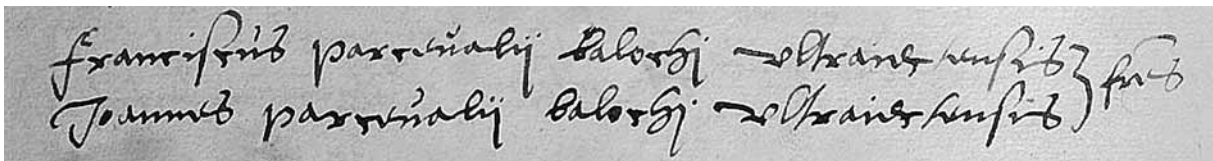 Franciscus parcevalij balochi vltraiectensis } fres
Joannes parcevalij balochi vltraiectensis